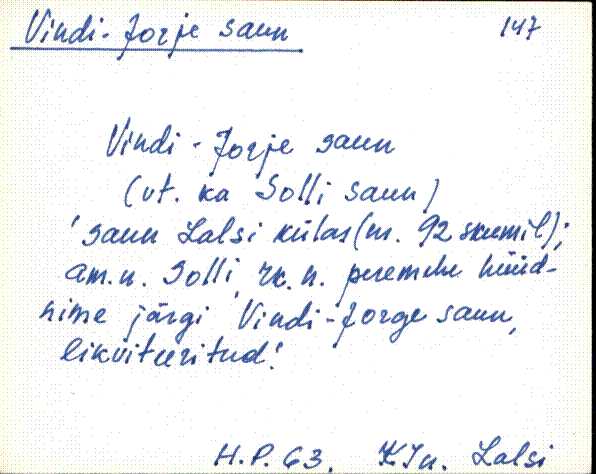 Vindi-Jorje saun
147
Vindi-Jorje saun
(vt. ka Solli saun)
'saun Lalsi külas (nr. 92 skeemil);
am.n. Solli, rk.n. peremehe hüüd-
nime järgi Vindi-Jorge saun,
likviteeritud.'
H.P. 63. KJn. Lalsi